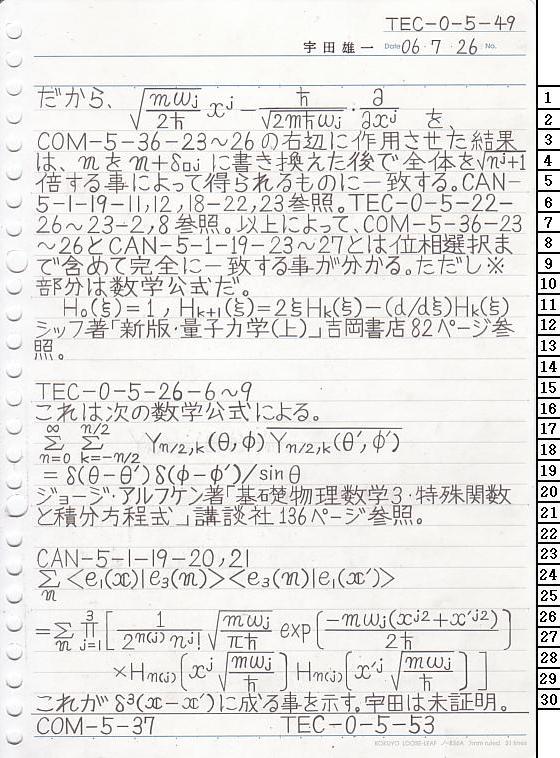 TEC-0-5-49
宇田雄一 Date 06・7・26 No.
だから、√(mωj/2ħ) x^j − ħ/√(2mħωj)・∂/∂x^j を、
COM-5-36-23~26の右辺に作用させた結果
は、nをn+δ□jに書き換えた後で全体を√(n^j+1)
倍する事によって得られるものに一致する。CAN-
5-1-19-11,12,18-22,23参照。TEC-0-5-22-
26~23-2,8参照。以上によって、COM-5-36-23
~26とCAN-5-1-19-23~27とは位相選択ま
で含めて完全に一致する事が分かる。ただし※
部分は数学公式だ。
H₀(ξ)=1, H_{k+1}(ξ)=2ξH_k(ξ)−(d/dξ)H_k(ξ)
シッフ著「新版・量子力学(上)」吉岡書店82ページ参
照。
TEC-0-5-26-6~9
これは次の数学公式による。
Σ_{n=0}^{∞} Σ_{k=-n/2}^{n/2} Y_{n/2,k}(θ,φ) \overline{Y_{n/2,k}(θ',φ')}
= δ(θ−θ')δ(φ−φ')/sinθ
ジョージ・アルフケン著「基礎物理数学3・特殊関数
と積分方程式」講談社136ページ参照。
CAN-5-1-19-20,21
Σ_n <e₁(x)|e₃(n)><e₃(n)|e₁(x')>
=Σ_n Π_{j=1}^{3} [ 1/(2^{n(j)} n^j!) √(mωj/πħ) exp(−mωj(x^{j2}+x'^{j2})/2ħ)
×H_{n(j)}(x^j √(mωj/ħ)) H_{n(j)}(x'^j √(mωj/ħ)) ]
これがδ³(x−x')に成る事を示す。宇田は未証明。
COM-5-37 TEC-0-5-53
KOKUYO LOOSE-LEAF ノ-836A 7mm ruled 31 lines
1
2
3
4
5
6
7
8
9
10
11
12
13
14
15
16
17
18
19
20
21
22
23
24
25
26
27
28
29
30